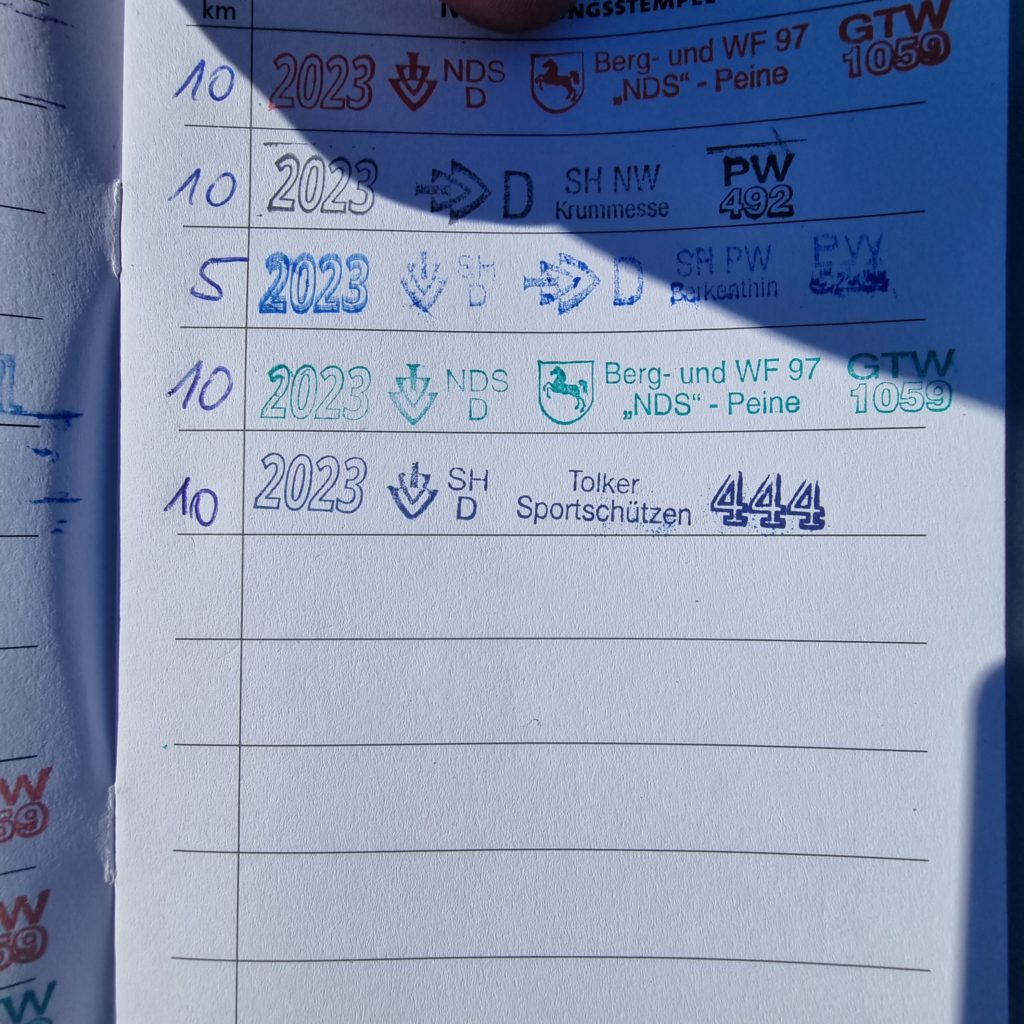 km NGSSTEMPEL
10 2023 NDS D Berg- und WF 97 „NDS“ - Peine GTW 1059
10 2023 D SH NW Krummesse PW 492
5 2023 SH D D SH PW Berkenthin PW
10 2023 NDS D Berg- und WF 97 „NDS“ - Peine GTW 1059
10 2023 SH D Tolker Sportschützen 444
W
59
W
59
W